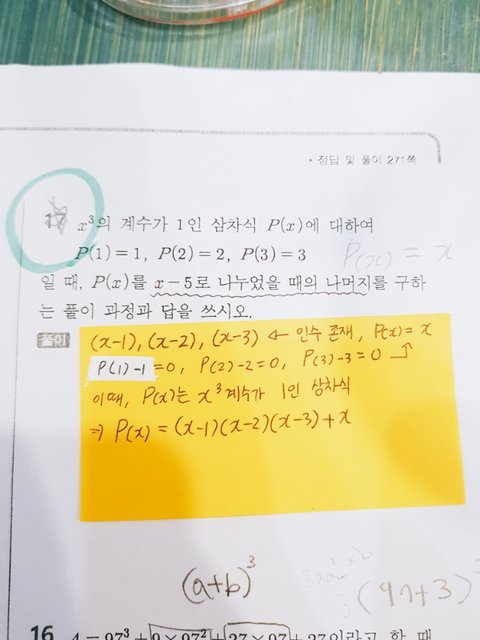 • 정답 및 풀이 271쪽
17 x³의 계수가 1인 삼차식 P(x)에 대하여
P(1)=1, P(2)=2, P(3)=3
P(x) = x
일 때, P(x)를 x-5로 나누었을 때의 나머지를 구하
는 풀이 과정과 답을 쓰시오.
풀이
(x-1), (x-2), (x-3) ← 인수 존재, P(x) = x
P(1)-1=0, P(2)-2=0, P(3)-3=0
이때, P(x)는 x³계수가 1인 삼차식
⇒ P(x) = (x-1)(x-2)(x-3)+x
(a+b)³
(97+3)³
16 A=97³+9×97²+27×97+27이라고 할 때